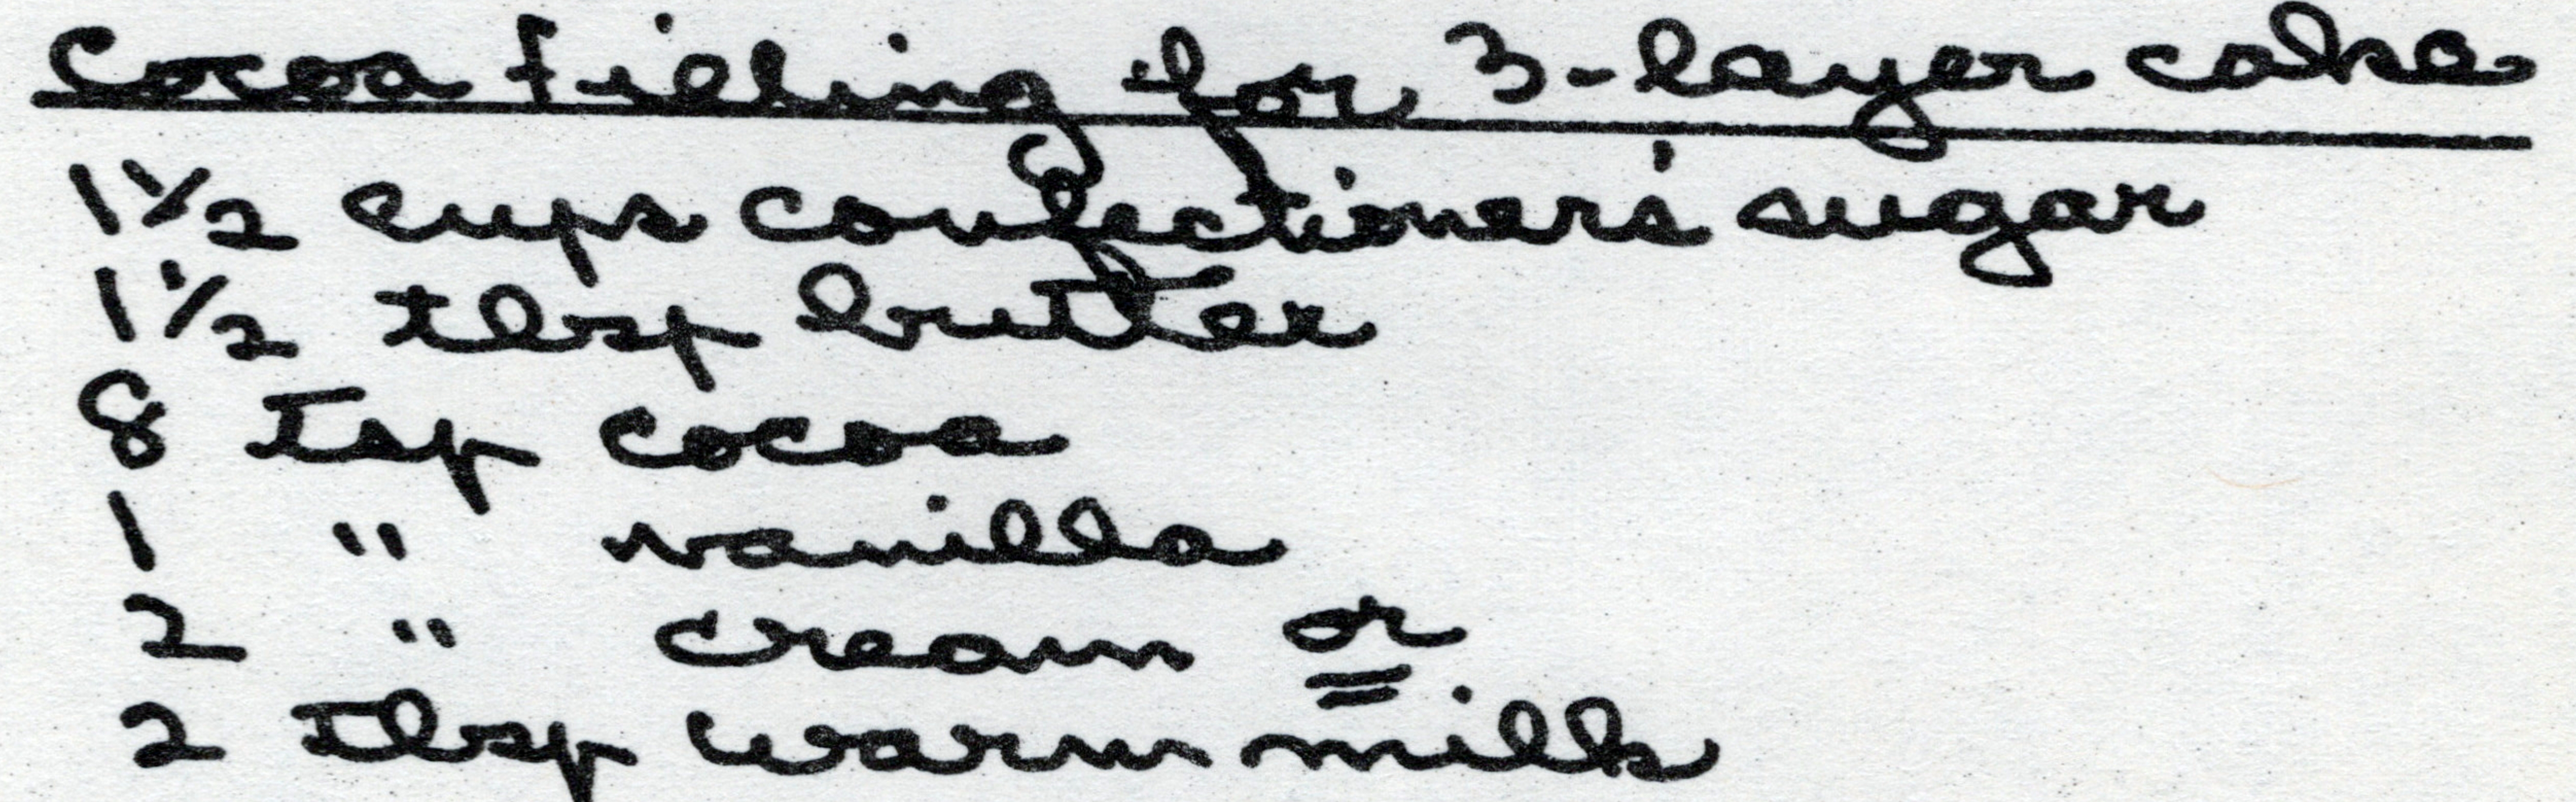 Cocoa filling for 3-layer cake
1 1/2 cups confectioner's sugar
1 1/2 tbsp butter
8 Tsp cocoa
1 " vanilla
2 " cream or
2 Tbsp warm milk